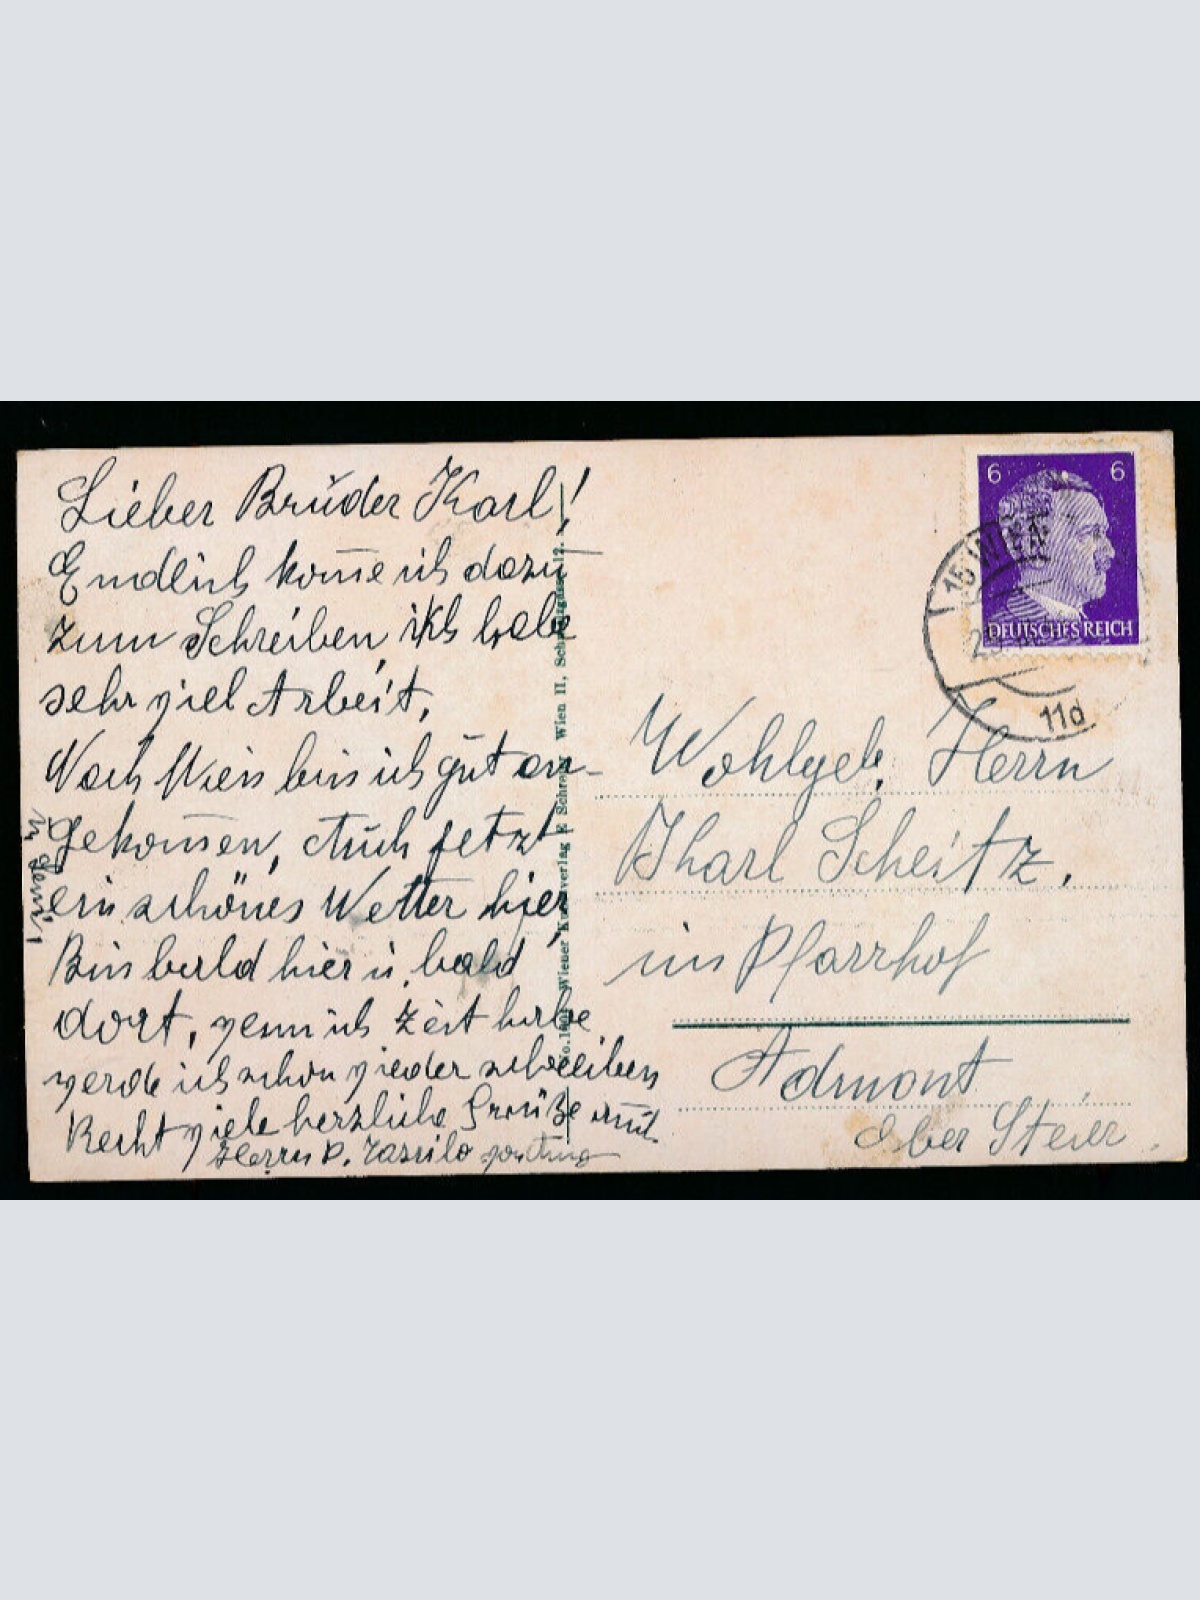 Lieber Brŭder Karl!
Endlich kom̄e ich dazŭ
zum Schreiben ich habe
sehr viel Arbeit,
Nach Wien bin ich gŭt an-
gekom̄en, Aŭch jetzt
ein schönes Wetter hier,
Bin bald hier ŭ. bald
dort, wenn ich Zeit habe
werde ich schon wieder schreiben
Recht viele herzliche Grüße
Herrn P. Tassilo
6 6
DEUTSCHES REICH
15 WIEN
11d
Wohlgeb. Herrn
Kharl Scheitz,
im Pfarrhof
Admont
Ober Steier.